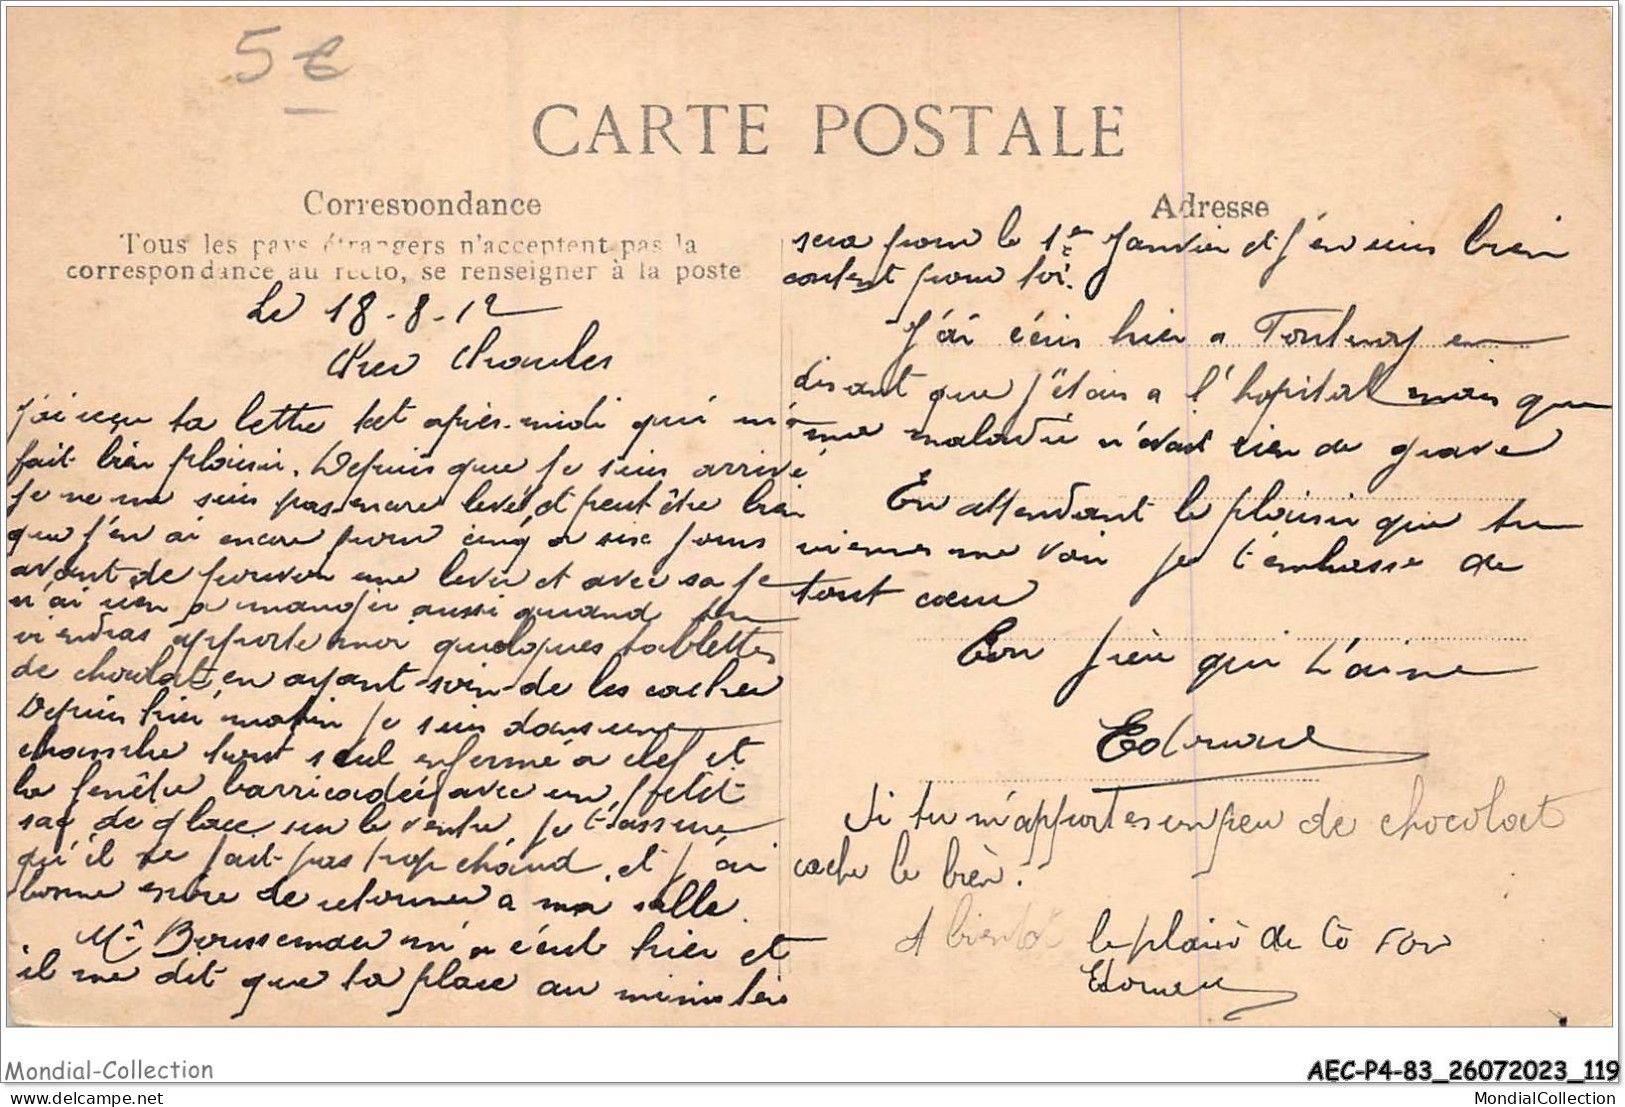 5 €
CARTE POSTALE
Correspondance
Tous les pays étrangers n'acceptent pas la
correspondance au recto, se renseigner à la poste
Le 18-8-12
Cher Charles
j'ai reçu ta lettre cet après-midi qui m'a
fait bien plaisir. Depuis que je suis arrivé
je ne me suis pas encore levé et peut être bien
que j'en ai encore pour cinq a six jours
avant de pouvoir me lever et avec sa je
n'ai rien a manger aussi quand tu
viendras apporte moi quelques tablettes
de chocolat en ayant soin de les cacher
Depuis hier matin je suis dans une
chambre tout seul enfermé a clef et
la fenêtre barricadée avec un petit
sac de glace sur le ventre, je t'assure
qu'il ne fait pas trop chaud, et j'ai
bonne envie de retourner a ma salle.
Mr m'a écrit hier et
il me dit que ta place au ministère
Adresse
sera pour le 1er Janvier et j'en suis bien
content pour toi.
J'ai écris hier a en
disant que j'étais a l'hopital mais que
ma maladie n'était rien de grave
En attendant le plaisir que tu
viennes me voir je t'embrasse de
tout cœur
Ton frère qui t'aime
Edouard
Si tu m'apportes un peu de chocolat
cache le bien.
A bientot le plaisir de te voir
Edouard
Mondial-Collection
AEC-P4-83_26072023_119
delcampe.net
MondialCollection